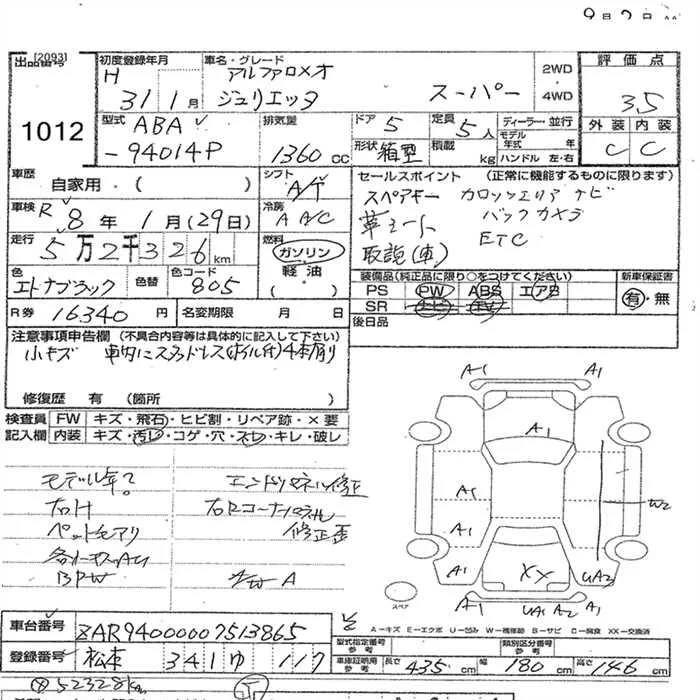 [2093]
出品番号
1012
初度登録年月
H
31 1月
車名・グレード
アルファロメオ
ジュリエッタ スーパー
2WD
4WD
評価点
3.5
外装 内装
C C
型式
ABA
-94014P
排気量
1360 CC
ドア
5
形状
箱型
定員
5人
積載
kg
ディーラー・並行
モデル年式 年
ハンドル 左・右
車歴
自家用・( )
シフト
A/T
車検 R 8年 1月(29日)
冷房
A A/C
走行
5万2千326km
燃料
ガソリン
軽油
( )
色
エトナブラック
色替
色コード
805
R券 16340円
名変期限 月 日
セールスポイント (正常に機能するものに限ります)
スペアキー カロッツェリア ナビ
革シート バックカメラ
取説(車) ETC
装備品(純正品に限り○をつけてください)
PS PW ABS エアB
SR ナビ TV
新車保証書
有・無
後日品
注意事項申告欄 (不具合内容等は具体的に記入して下さい)
小キズ 車内にスタッドレス(ホイル付)4本有り
修復歴 有 (箇所 )
検査員記入欄
FW キズ・飛石・ヒビ割・リペア跡・×要
内装 キズ・汚レ・コゲ・穴・スレ・キレ・破レ
モデル年?
右H
エンドパネル修正
右Rコーナーパネル
修正歪
BPW
A1 A1
A1
A1
A1
W2
A1 XX UA2
A1 UA1 A2 A1
スペア
A−キズ E−エクボ U−凹み W−補修跡 B−サビ C−腐食 XX−交換済
車台番号
ZAR94000007513865
登録番号
松本 341 ゆ 117
型式指定番号
参考
類別区分番号
参考
車庫証明用
参考
長さ 435cm 幅 180cm 高さ 146cm
52328km